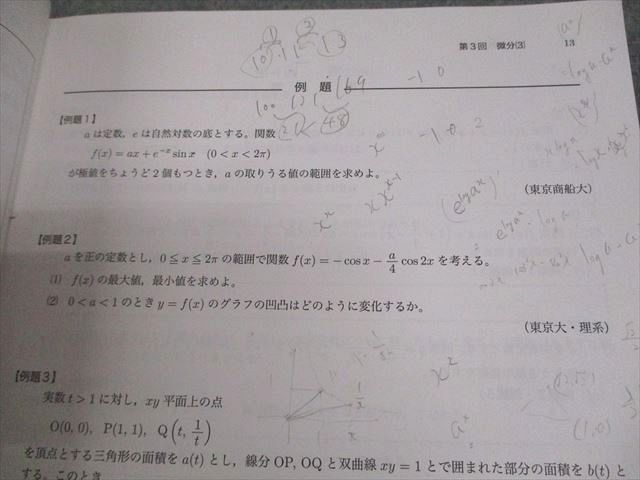 第3回 微分(3) 13
例題
【例題1】
aは定数，eは自然対数の底とする。関数
f(x)=ax+e^{-x}sin x (0<x<2π)
が極値をちょうど2個もつとき，aの取りうる値の範囲を求めよ。
(東京商船大)
【例題2】
aを正の定数とし，0≦x≦2πの範囲で関数f(x)=-cos x-\frac{a}{4}cos 2xを考える。
(1) f(x)の最大値，最小値を求めよ。
(2) 0<a<1のときy=f(x)のグラフの凹凸はどのように変化するか。
(東京大・理系)
【例題3】
実数t>1に対し，xy平面上の点
O(0, 0), P(1, 1), Q(t, \frac{1}{t})
を頂点とする三角形の面積をa(t)とし，線分OP, OQと双曲線xy=1とで囲まれた部分の面積をb(t)と
する。このとき
① ②
169
-1 0
-1 0 2
100 121
21 < 48
x^x
x^2
a^x
\frac{1}{x}
(1,0)